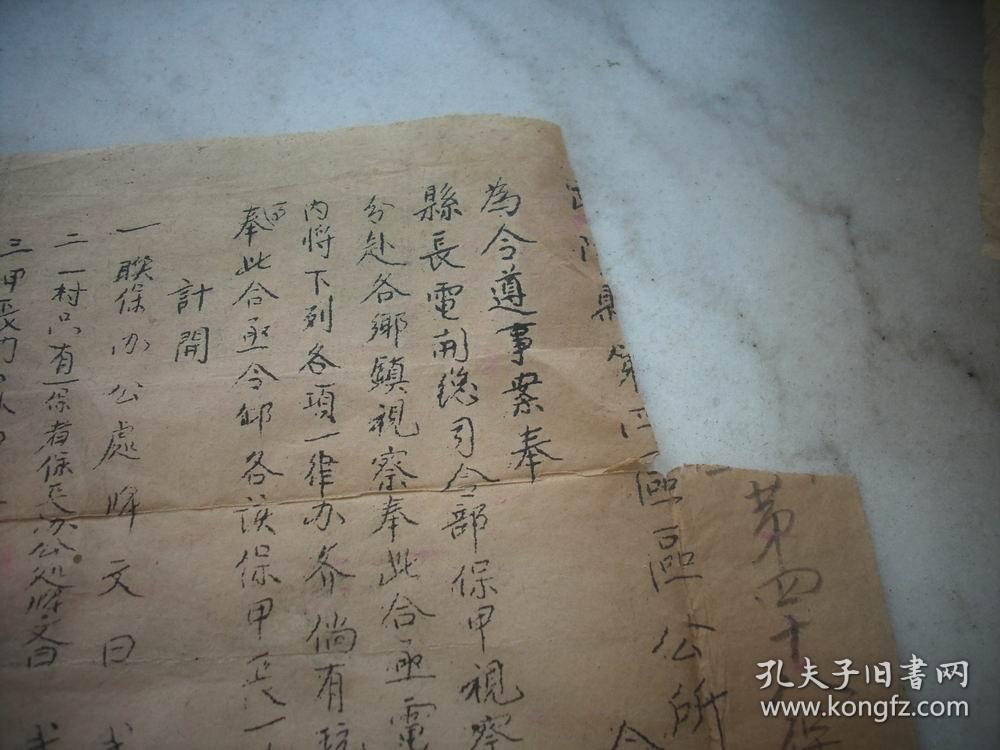 第四十
縣第 區區公所 令
為令遵事案奉
縣長電開總司令部保甲視察
分赴各鄉鎮視察奉此合亟電
內將下列各項一律办 倘有
奉此合亟令 各該保甲長一
計開
一聯保办公處牌文曰
二一村只有一保者保長办公处牌文曰
三甲長
孔夫子旧书网
www.kongfz.com